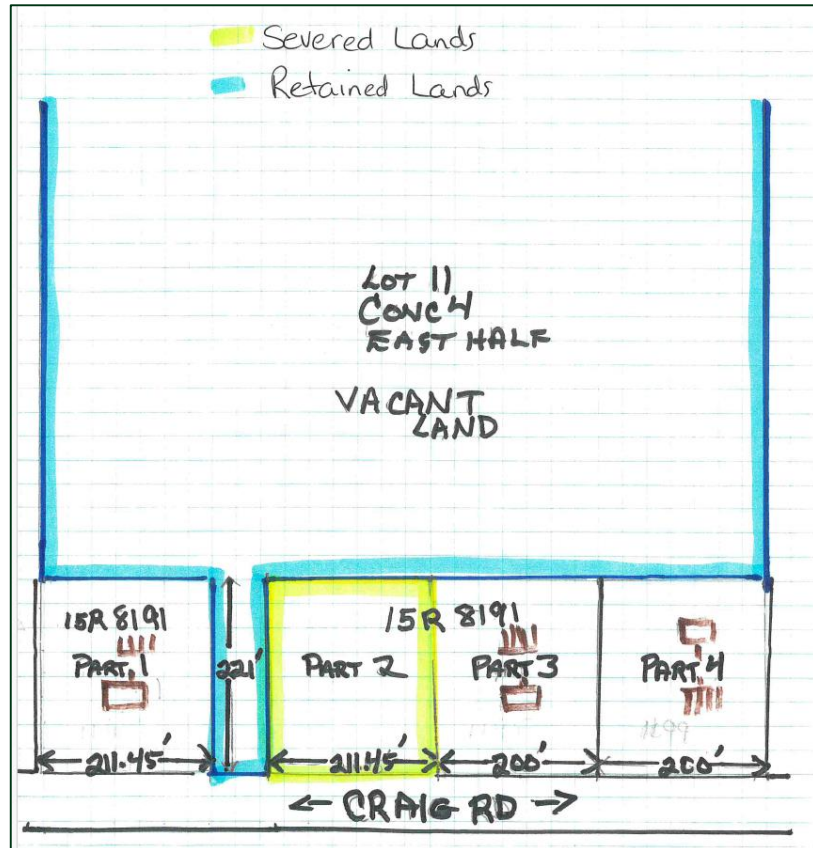 Severed Lands
Retained Lands
LOT 11
CONC 4
EAST HALF
VACANT
LAND
15R 8191
15R 8191
PART 1
221'
PART 2
PART 3
PART 4
1199
211.45'
211.45'
200'
200'
← CRAIG RD →